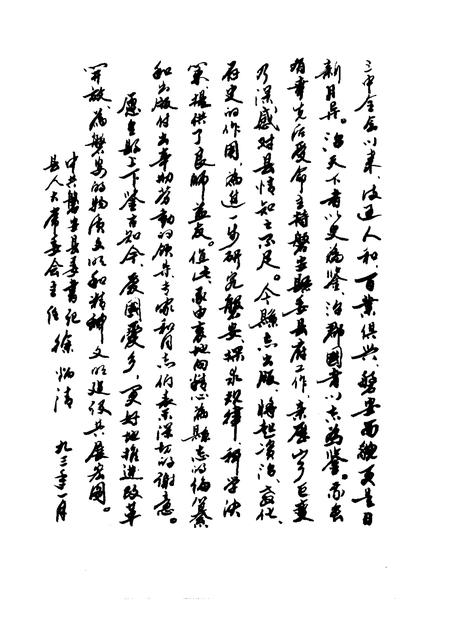 三中全会以来，政通人和，百业俱兴，磐安面貌更是日
新月异。治天下者以史为鉴，治郡国者以志为鉴。我虽
有幸先后受命主持磐安县委县府工作，亲历山乡巨变
乃深感对县情知之不足。今县志出版，将起资治、教化、
存史的作用，为进一步研究磐安、探求规律、科学决
策提供了良师益友。值此，我由衷地向精心为县志的编纂
和出版付出辛勤劳动的领导、专家和同志们表示深切的谢意。
愿全县上下鉴古知今，爱国爱乡，更好地推进改革
开放，为磐安的物质文明和精神文明建设共展宏图。
中共磐安县委书记
县人大常委会主任 徐炳清
九三年一月